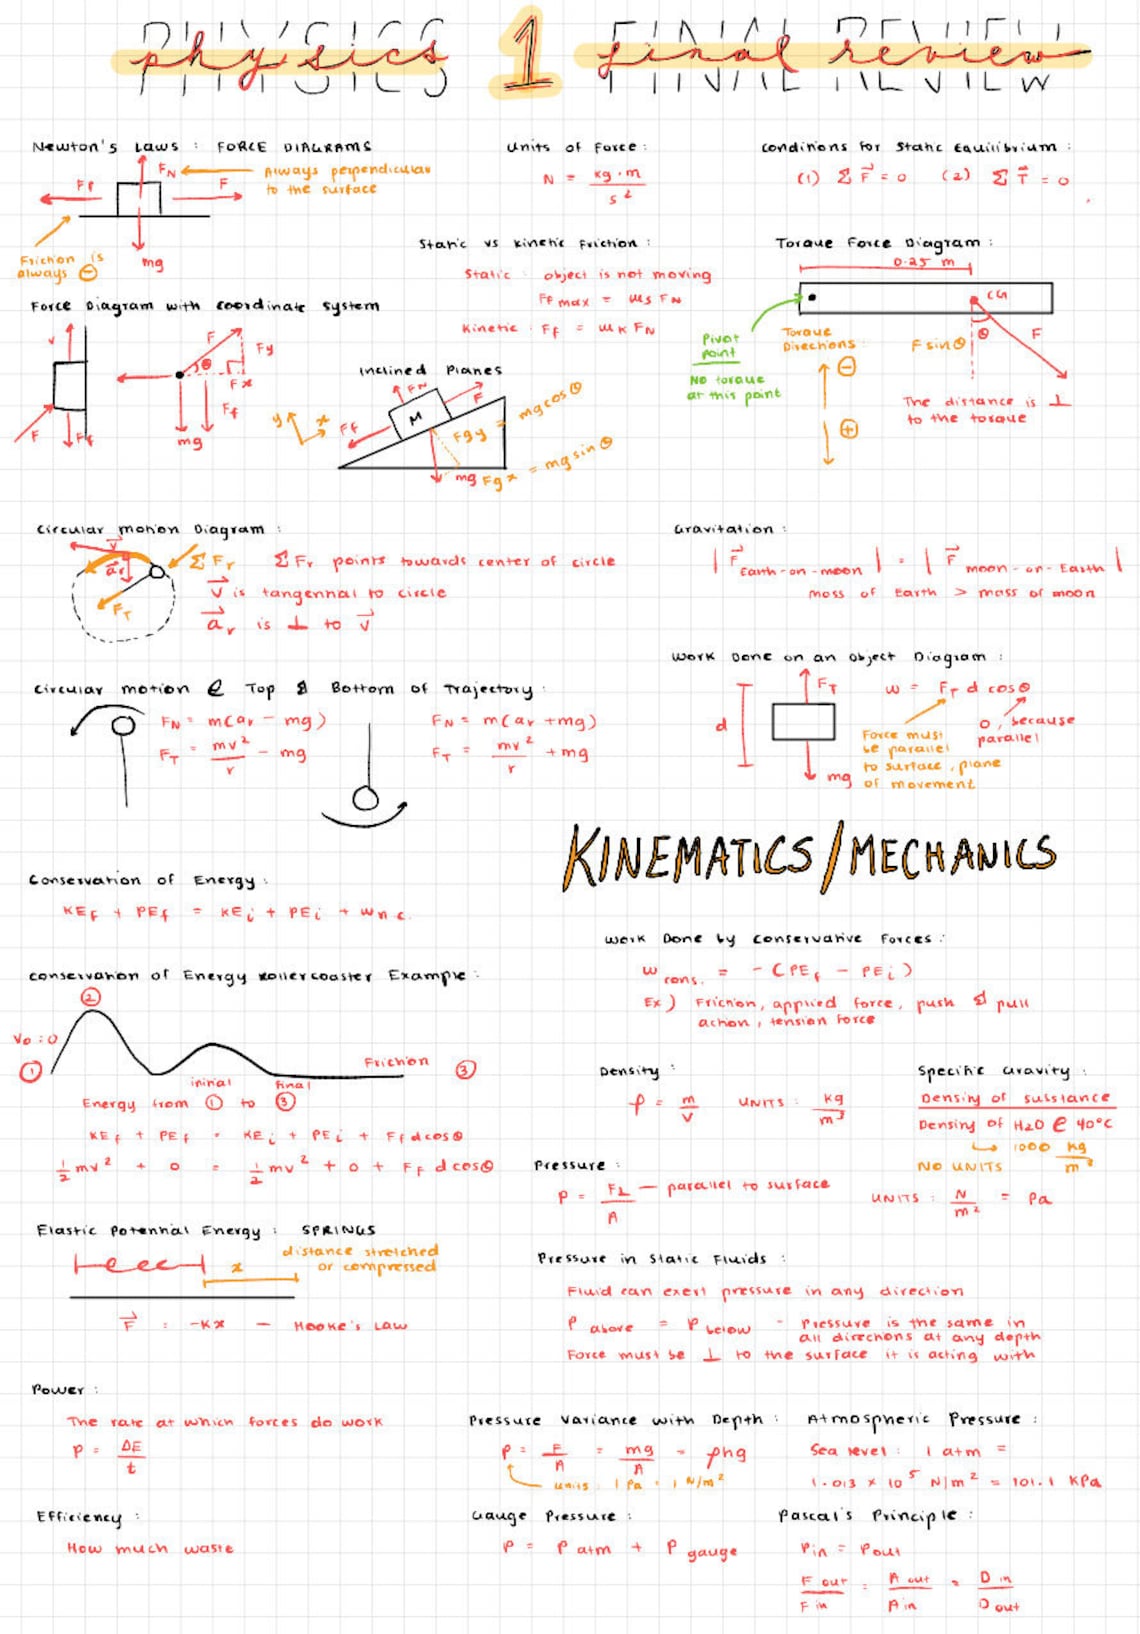 PHYSICS 1 FINAL REVIEW
physics 1 final review
Newton's Laws : FORCE DIAGRAMS
FN
Always perpendicular
to the surface
Ff
F
Friction is
always ⊖
mg
Units of Force :
N = kg·m / s²
Conditions for Static Equilibrium :
(1) Σ F⃗ = 0 (2) Σ T⃗ = 0
Static vs Kinetic Friction :
Static : object is not moving
Ff max = μs FN
Kinetic : Ff = μK FN
Torque Force Diagram :
0.25 m
CG
θ
F
F sinθ
Pivot
point
No torque
at this point
Torque
Directions :
⊖
⊕
The distance is ⊥
to the torque
Force Diagram with coordinate system
F
Ff
F
Fy
θ
Fx
Ff
mg
Inclined Planes
FN
F
M
y
x
Ff
Fgy = mg cosθ
mg
Fgx = mg sinθ
Circular motion Diagram :
v⃗
a⃗r
FT
ΣFr
ΣFr points towards center of circle
v⃗ is tangential to circle
a⃗r is ⊥ to v⃗
Gravitation :
| F⃗ Earth-on-moon | = | F⃗ moon-on-Earth |
mass of Earth > mass of moon
Work Done on an Object Diagram :
FT
d
mg
w = FT d cosθ
0, because
parallel
Force must
be parallel
to surface, plane
of movement
Circular motion @ Top & Bottom of Trajectory :
FN = m(ar - mg)
FT = mv²/r - mg
FN = m(ar + mg)
FT = mv²/r + mg
KINEMATICS/MECHANICS
Conservation of Energy :
KEf + PEf = KEi + PEi + Wn.c.
Work Done by Conservative Forces :
W cons. = -(PEf - PEi)
Ex) Friction, applied force, push & pull
action, tension force
Conservation of Energy Rollercoaster Example :
②
Vo = 0
①
Friction
③
initial final
Energy from ① to ③
KEf + PEf = KEi + PEi + Ff d cosθ
½ mv² + 0 = ½ mv² + 0 + Ff d cosθ
Density :
ρ = m/V UNITS : kg/m³
Specific Gravity :
Density of substance
Density of H2O @ 40°C
1000 kg/m³
NO UNITS
Pressure :
P = F⊥/A — parallel to surface
UNITS : N/m² = Pa
Elastic Potential Energy : SPRINGS
x
distance stretched
or compressed
F⃗ = -Kx — Hooke's Law
Pressure in Static Fluids :
Fluid can exert pressure in any direction
P above = P below - Pressure is the same in
all directions at any depth
Force must be ⊥ to the surface it is acting with
Power :
The rate at which forces do work
P = ΔE/t
Pressure Variance with Depth :
P = F/A = mg/A = ρhg
units : 1 Pa = 1 N/m²
Atmospheric Pressure :
Sea level : 1 atm =
1.013 × 10⁵ N/m² = 101.1 KPa
Efficiency :
How much waste
Gauge Pressure :
P = P atm + P gauge
Pascal's Principle :
Pin = Pout
F out/F in = A out/A in = D in/D out